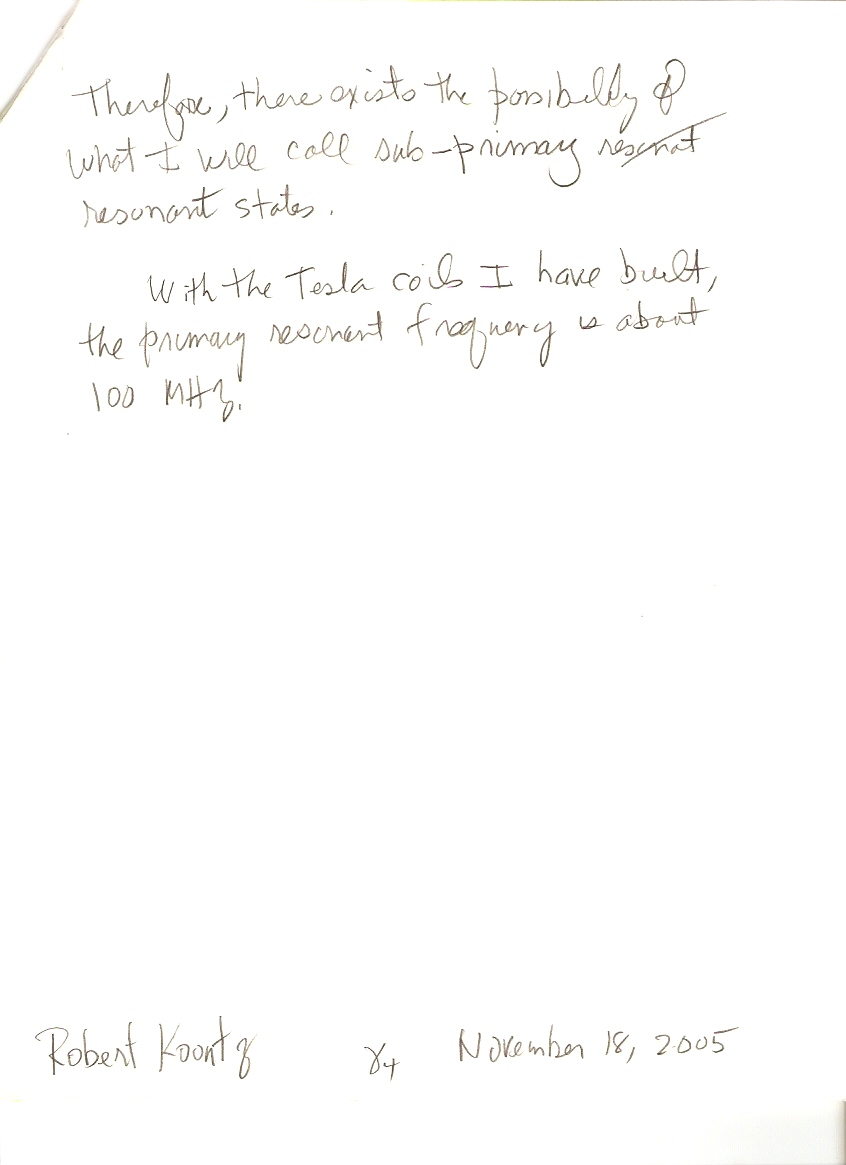 Therefore, there exists the possibility of
what I will call sub-primary resonat
resonant states.
With the Tesla coils I have built,
the primary resonant frequency is about
100 MHz.
Robert Koontz γ4 November 18, 2005